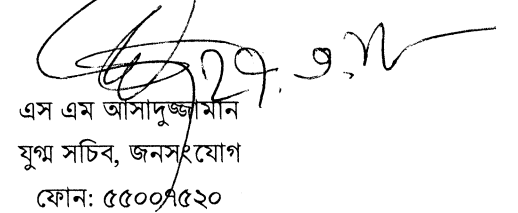 এস এম আসাদুজ্জামান
যুগ্ম সচিব, জনসংযোগ
ফোন: ৫৫০০৭৫২০